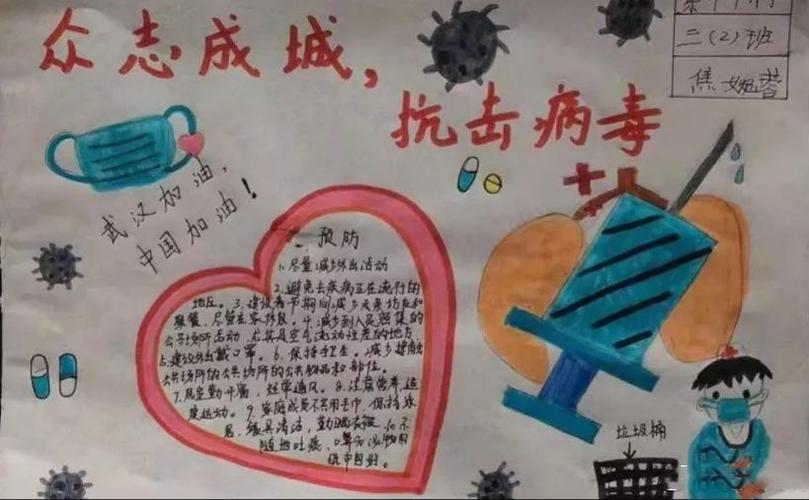 众志成城，
抗击病毒
三（2）班
焦
武汉加油，
中国加油！
预防
1、尽量减少外出活动
2、避免去疾病正在流行的
地区。3、建议春节期间减少走亲访友和
聚餐，尽量在家休息。4、减少到人员密集的
公共场所活动，尤其是空气流动性差的地方
5、建议外出戴口罩。6、保持手卫生。减少接触
公共场所的公共场所的公共物品和部位。
7、居室勤开窗，经常通风。8、注意营养，适
度运动。9、家庭成员不共用毛巾，保持家
居、餐具清洁，勤晒衣被。10、不
随地吐痰，口鼻分泌物用
纸巾包好。
垃圾桶